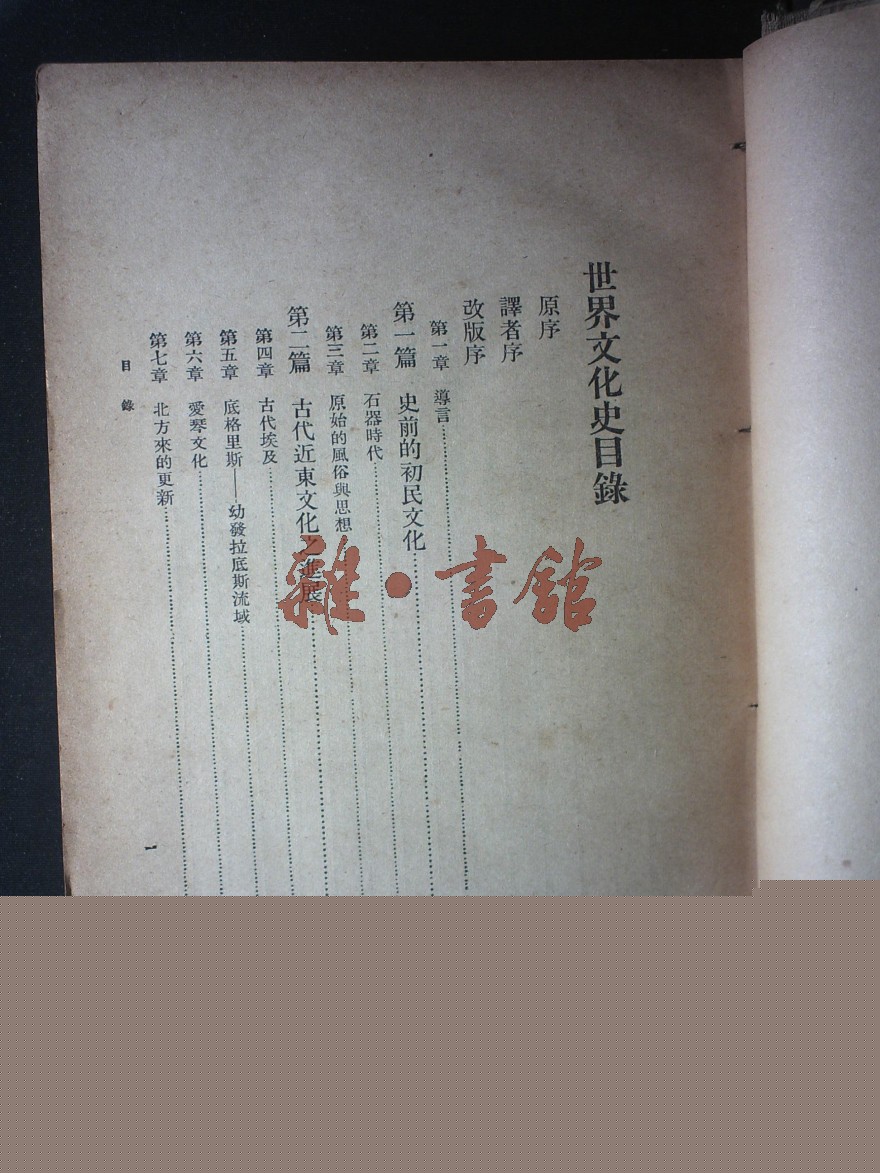 世界文化史目錄
原序
譯者序
改版序
第一章 導言
第一篇 史前的初民文化
第二章 石器時代
第三章 原始的風俗與思想
第二篇 古代近東文化之進展
第四章 古代埃及
第五章 底格里斯——幼發拉底斯流域
第六章 愛琴文化
第七章 北方來的更新
目錄
一
雜·書館